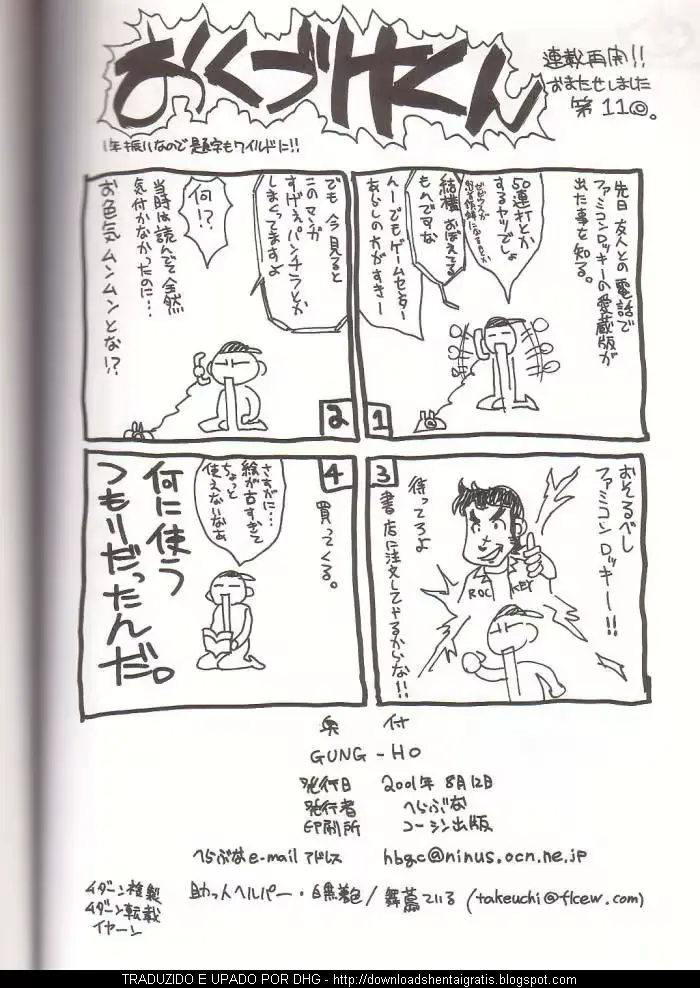 おくづけくん
連載再開!!
おまたせしました
第11回。
1年振りなので題字もワイルドに!!
先日 友人との電話で
ファミコンロッキーの愛蔵版が
出た事を知る。
50連打とか
するヤツでしょ
結構 おぼえてる
もんですな
んーでもゲームセンター
あらしの方がすきー
1
でも 今見ると
このマンガ
すげえパンチラとか
しまくってますよ
何!?
当時は読んでて全然
気付かなかったのに…
お色気ムンムンとな!?
2
おそるべし
ファミコンロッキー!!
ROC KEY
待ってろよ
書店に注文してやるからな!!
3
買ってくる。
さすがに…
絵が古すぎて
ちょっと
使えないなあ
何に使う
つもりだったんだ。
4
奥付
GUNG-HO
発行日 2001年8月12日
発行者 へらぶな
印刷所 コーシン出版
へらぶなe-mailアドレス hbgc@ninus.ocn.ne.jp
助っ人ヘルパー・白無包/舞蔦ている (takeuchi@flcew.com)
イダーン複製
イダーン転載
イヤーン
TRADUZIDO E UPADO POR DHG - http://downloadshentaigratis.blogspot.com